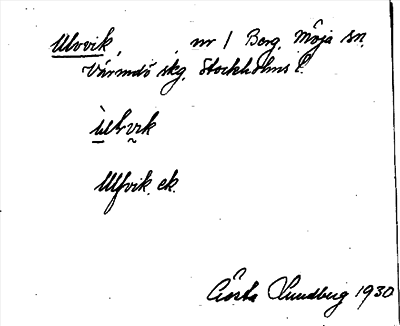 Ulvvik, nr 1 Berg, Möja sn.
Värmdö skg. Stockholms l.
Ulfvik, ek.
Gösta Lundberg 1930